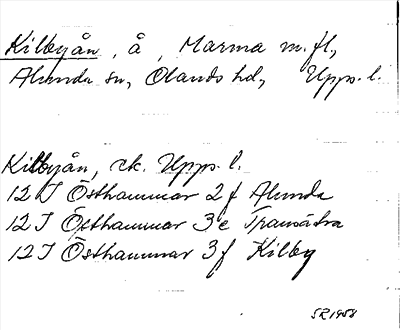 Kilbyån, å, Marma m. fl.,
Alunda sn, Olands hd, Upps. l.
Kilbyån, ek. Upps. l.
12 I Östhammar 2 f Alunda
12 I Östhammar 3 e Tranvätra
12 I Östhammar 3 f Kilby
SR 1958